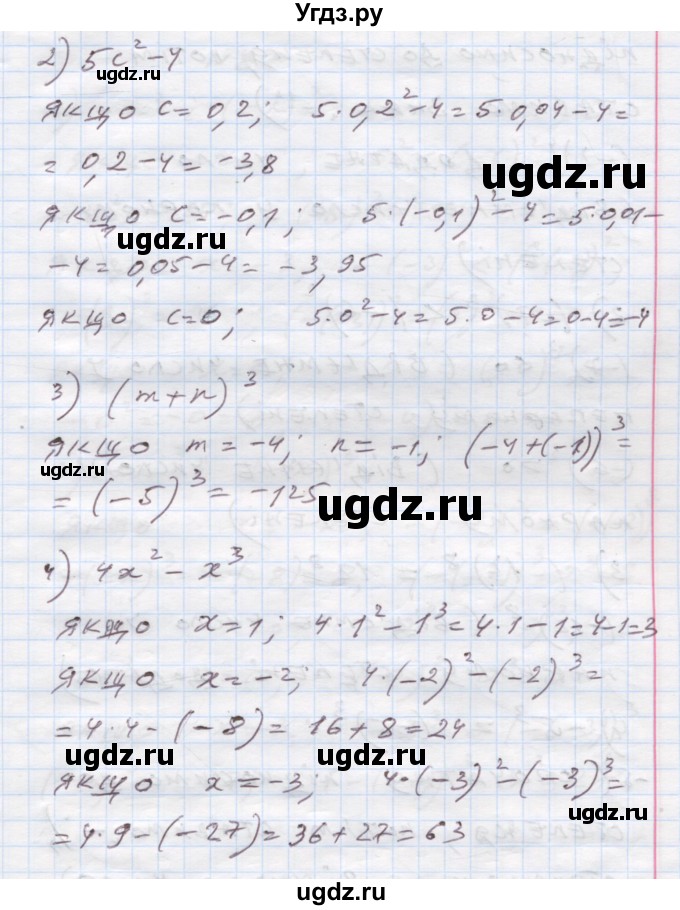 Угдз.ру
2) 5c² - 4
якщо c = 0,2; 5·0,2² - 4 = 5·0,04 - 4 =
= 0,2 - 4 = -3,8
якщо c = -0,1; 5·(-0,1)² - 4 = 5·0,01 -
- 4 = 0,05 - 4 = -3,95
якщо c = 0; 5·0² - 4 = 5·0 - 4 = 0 - 4 = -4
3) (m + n)³
якщо m = -4; n = -1; (-4 + (-1))³ =
= (-5)³ = -125
4) 4x² - x³
якщо x = 1; 4·1² - 1³ = 4·1 - 1 = 4 - 1 = 3
якщо x = -2; 4·(-2)² - (-2)³ =
= 4·4 - (-8) = 16 + 8 = 24
якщо x = -3; 4·(-3)² - (-3)³ =
= 4·9 - (-27) = 36 + 27 = 63
ugdz.ru
ugdz.ru
ugdz.ru
ugdz.ru
ugdz.ru
ugdz.ru
ugdz.ru
ugdz.ru
ugdz.ru